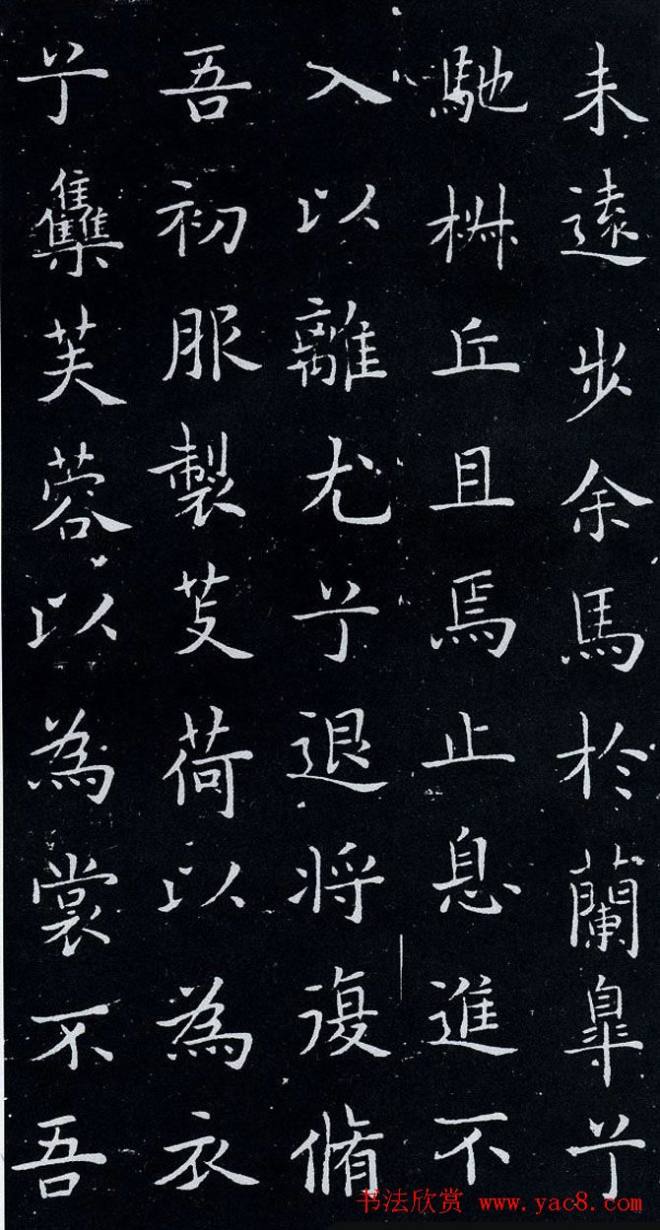 未遠步余馬於蘭皋兮
馳椒丘且焉止息進不
入以離尤兮退將復脩
吾初服製芰荷以為衣
兮集芙蓉以為裳不吾
书法欣赏 www.yac8.com